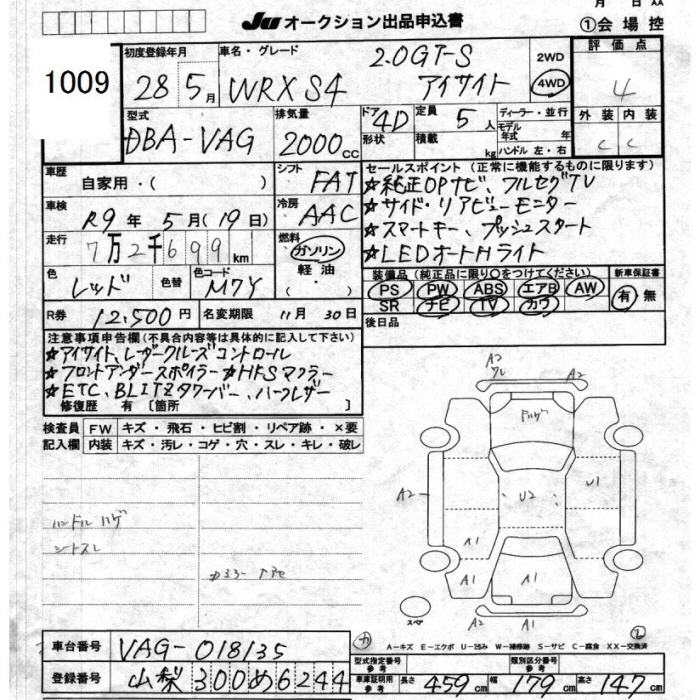 月 日 AA
JU オークション出品申込書 ①会場控
1009
初度登録年月 28 5月
車名・グレード WRX S4 2.0GT-S アイサイト
2WD 4WD
評価点 4
型式 DBA-VAG
排気量 2000cc
ドア 4D 形状
定員 5人 積載 kg
ディーラー・並行
モデル年式 年
ハンドル 左・右
外装 内装
C C
車歴 自家用・( )
シフト FAT
車検 R9年 5月(19日)
冷房 AAC
走行 7万2千699km
燃料 ガソリン 軽油 ・( )
色 レッド 色替
色コード M7Y
R券 12,500円 名変期限 11月 30日
セールスポイント(正常に機能するものに限ります)
☆純正OPナビ、フルセグTV
☆サイド・リアビューモニター
☆スマートキー、プッシュスタート
☆LEDオートHライト
装備品(純正品に限り○をつけてください) 新車保証書
PS PW ABS エアB AW 有 無
SR ナビ TV カワ
後日品
注意事項申告欄(不具合内容等は具体的に記入して下さい)
☆アイサイト、レーダークルーズコントロール
☆フロントアンダースポイラー ☆HKSマフラー
☆ETC、BLITZタワーバー、ハーフレザー
修復歴 有 〔箇所 〕
検査員記入欄
FW キズ・飛石・ヒビ割・リペア跡・×要
内装 キズ・汚レ・コゲ・穴・スレ・キレ・破レ
ハンドルハゲ
シートスレ
A2
A2
A2
U2
U1
A1
A1
A1
A2
A1
スペア
A-キズ E-エクボ U-凹み W-補修跡 S-サビ C-腐食 XX-交換済
車台番号 VAG-018135
登録番号 山梨 300 め 6244
型式指定番号 参考
類別区分番号 参考
車庫証明用 参考 長さ 459cm 幅 179cm 高さ 147cm